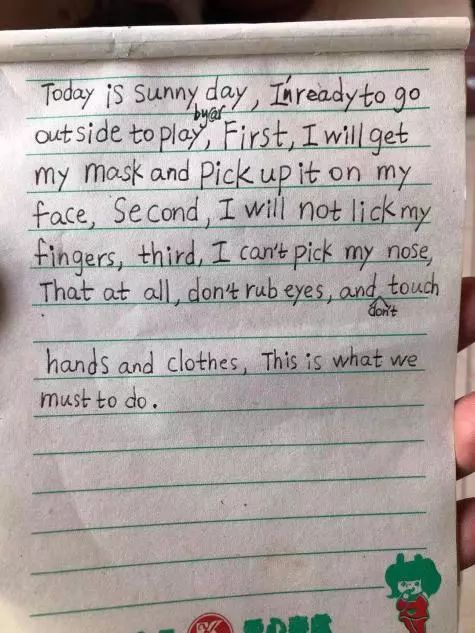 Today is sunny day, I'm ready to go
outside to play, First, I will get
my mask and Pick up it on my
face, Second, I will not lick my
fingers, third, I can't pick my nose,
That at all, don't rub eyes, and don't touch
hands and clothes, This is what we
must to do.